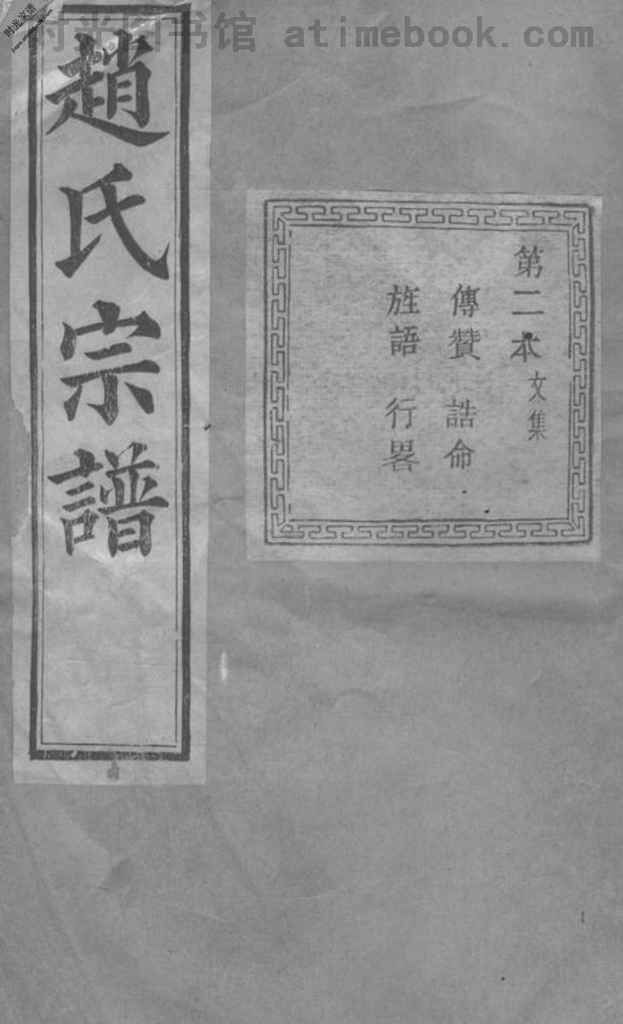 时光图书馆 atimebook.com
趙氏宗譜
第二本 文集
傳贊 誥命
旌語 行畧